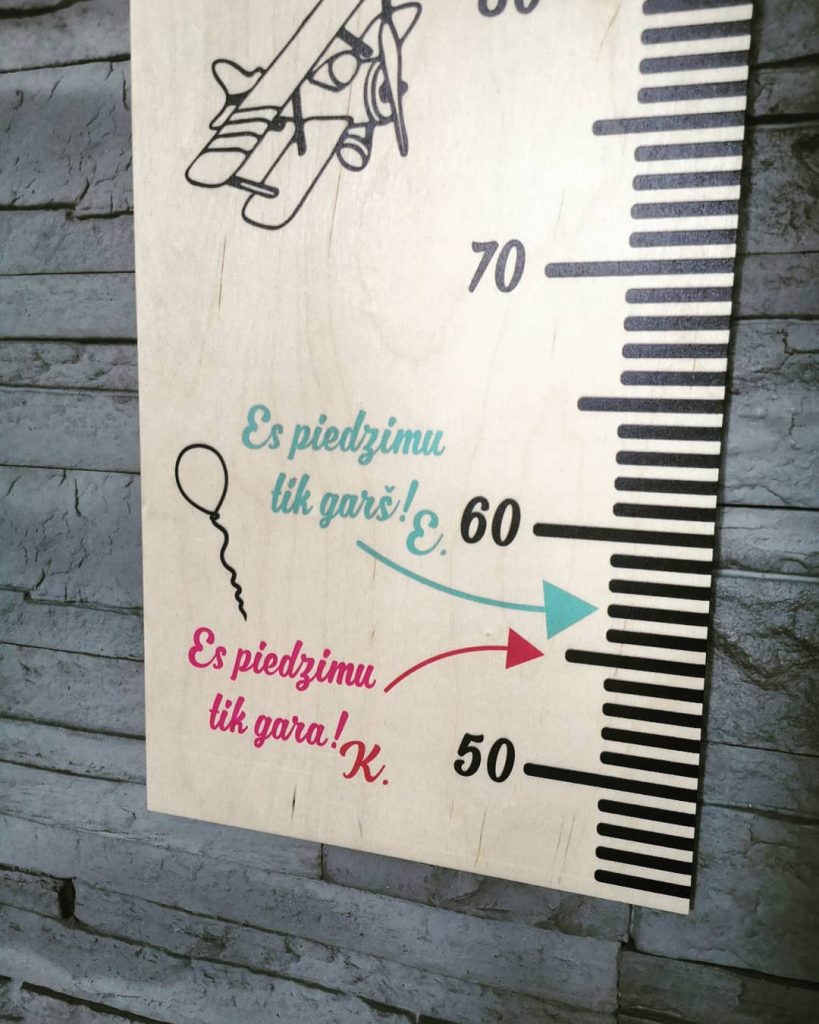 80
70
Es piedzimu
tik garš!
E.
60
Es piedzimu
tik gara!
K.
50